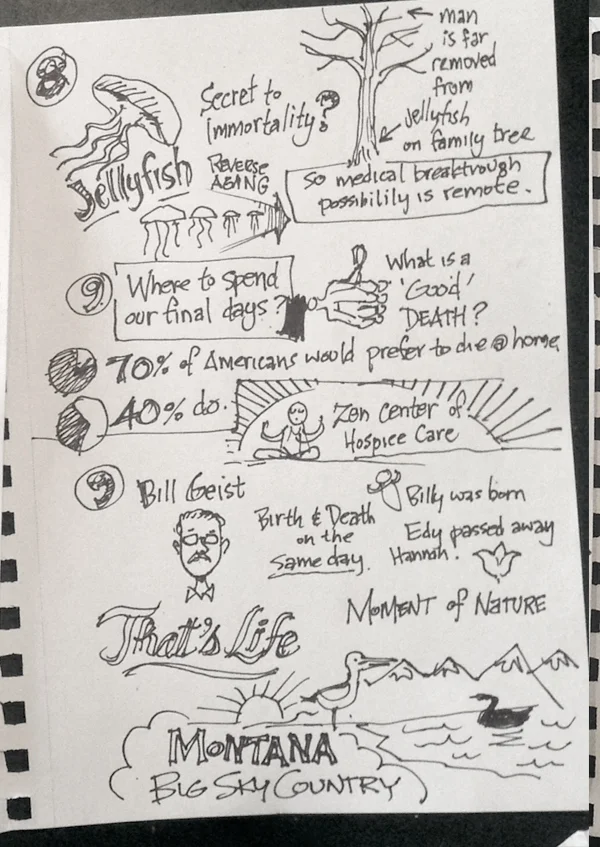 man
is far
removed
from
Jellyfish
on family tree
Secret to
immortality?
Jellyfish
REVERSE
AGING
So medical breaktrough
possibilily is remote.
9.
Where to spend
our final days?
What is a
'Good'
DEATH?
70% of Americans would prefer to die @ home
40% do.
Zen Center of
Hospice Care
9
Bill Geist
Birth & Death
on the
same day.
Billy was born
Edy passed away
Hannah.
That's Life
MOMENT of NATURE
MONTANA
BIG SKY COUNTRY